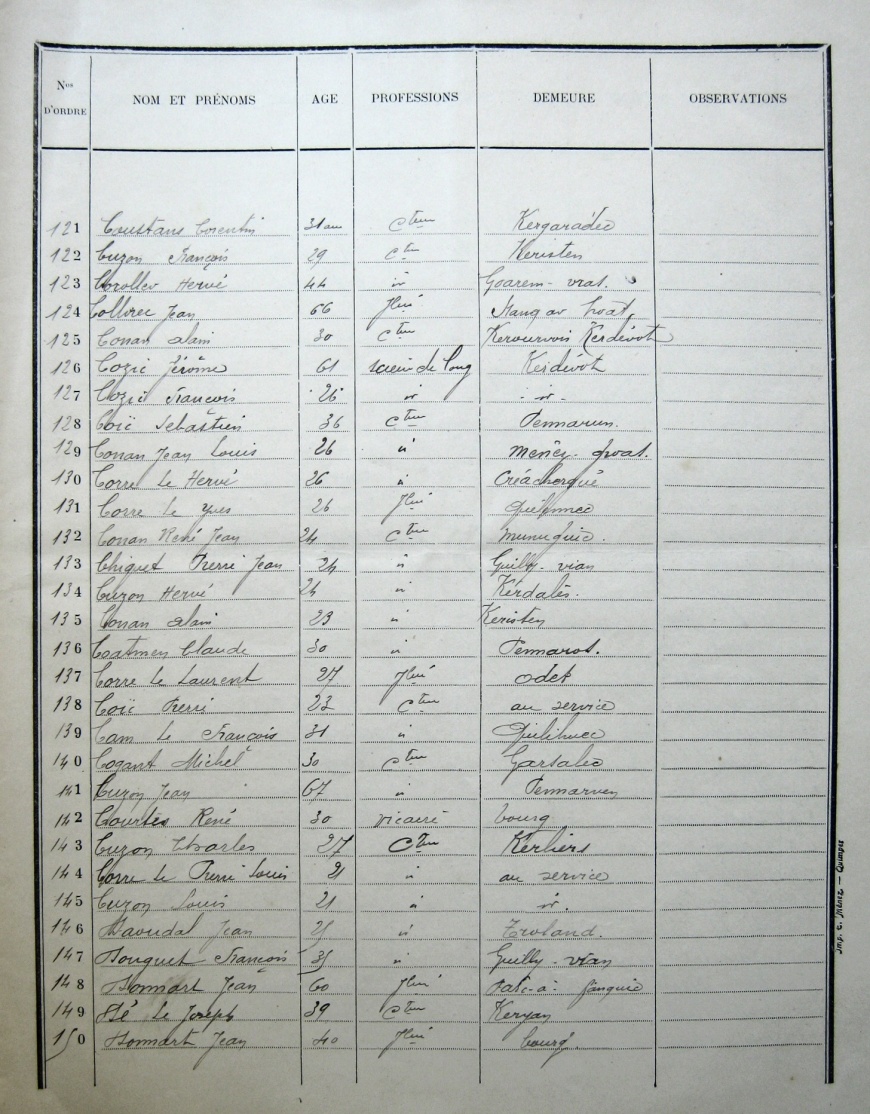 Nos D'ORDRE NOM ET PRÉNOMS AGE PROFESSIONS DEMEURE OBSERVATIONS
121 Corentin 31 ans Cteur Kergaradec
122 Cuzon François 29 Cteur Keristen
123 Coroller Hervé 44 " Goarem-vras.
124 Collorec Jean 66 Jlier Stang ar hoat
125 Conan Alain 30 Cteur Kerourvois Kerdévot
126 Cozic Jérôme 61 Kerdévot
127 Cozic François 26 " - " -
128 Coïc Sébastien 36 Cteur Pennarun.
129 Conan Jean Louis 26 " Méney-groas.
130 Corre le Hervé 26 " Créachergué
131 Corre le Yves 26 Jlier
132 Conan René Jean 24 Cteur Munuguic.
133 Chiquet Pierre Jean 24 " Guilly-vian
134 Cuzon Hervé 24 " Kerdalès.
135 Conan Alain 23 " Keristen
136 Coatmen Claude 30 " Pennaros.
137 Corre le Laurent 27 Jlier Odet
138 Coïc Pierre 23 Cteur au service
139 Cam le François 31 " Quilihuec
140 Cogant Michel 30 Cteur Garsalec
141 Cuzon Jean 67 " Pennarven
142 Courtès René 30 vicaire bourg
143 Cuzon Charles 27 Cteur Kerhiers
144 Corre le Pierre Louis 21 " au service
145 Cuzon Louis 21 " ".
146 Daoudal Jean 25 " Troland.
147 Douguet François 35 " Guilly-vian
148 Donnart Jean 60 Jlier
149 Dé le Joseph 39 Cteur Keryan
150 Donnart Jean 40 Jlier bourg.
Imp. C. Ménez — Quimper